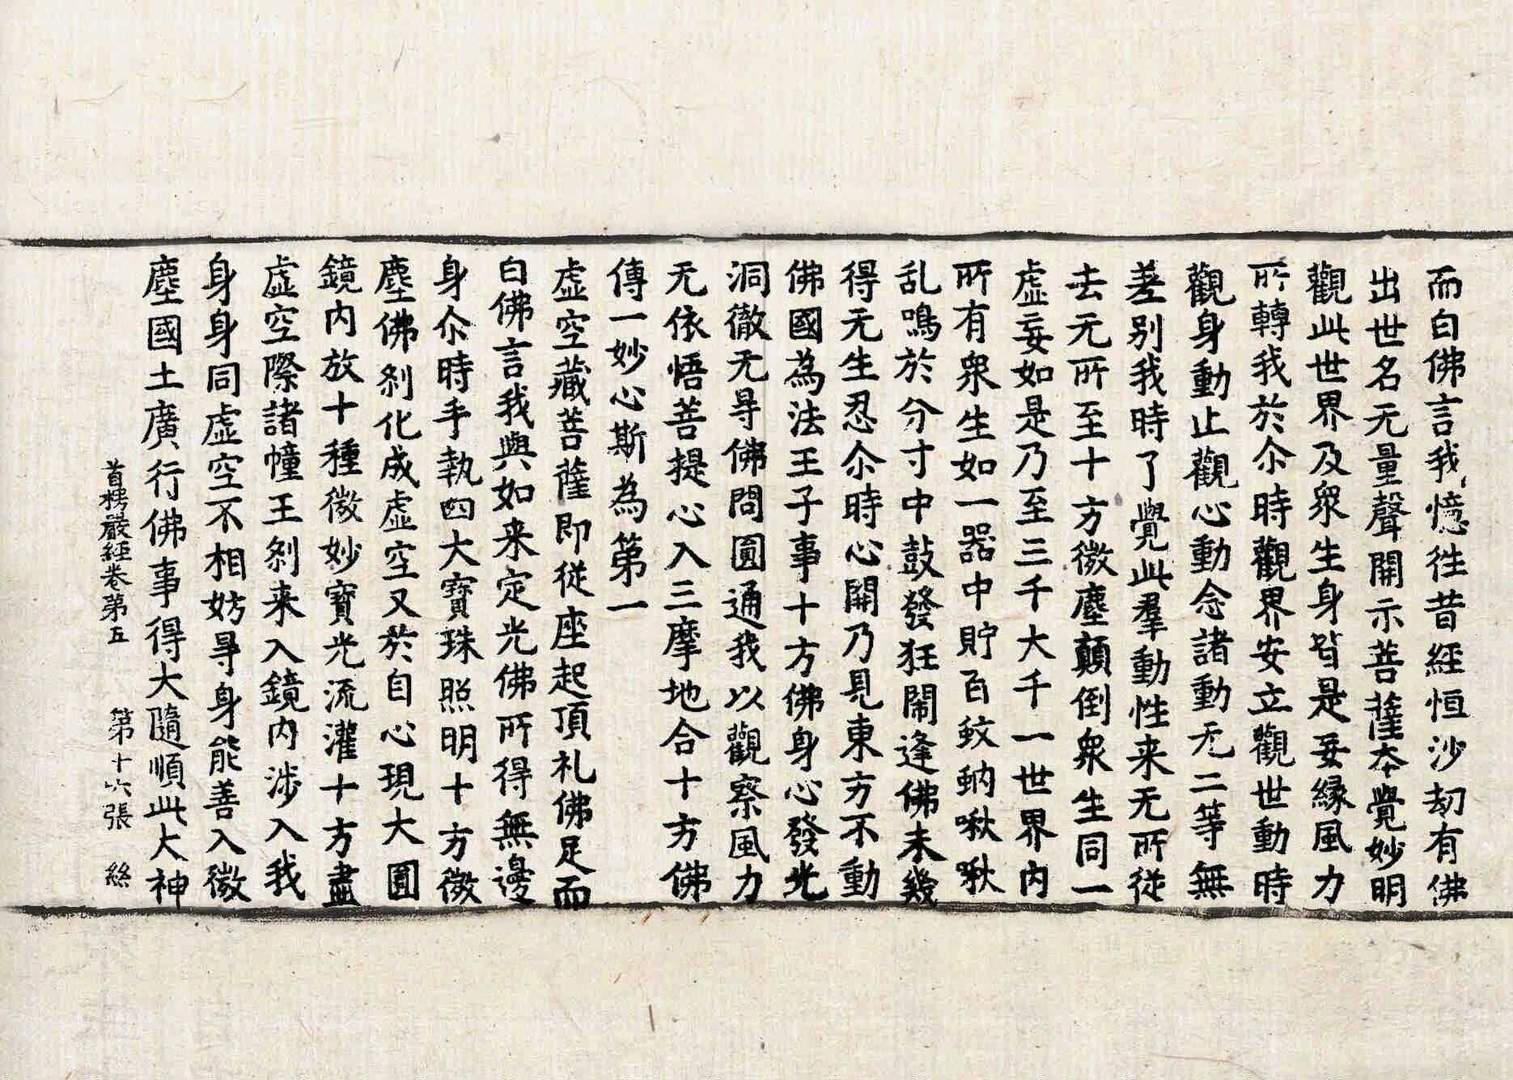 而白佛言我憶徃昔經恒沙刧有佛
出世名无量聲開示菩薩夲覺妙明
觀此世界及衆生身皆是妄縁風力
所轉我於尒時觀界安立觀世動時
觀身動止觀心動念諸動无二等無
差别我時了覺此羣動性来无所從
去无所至十方微塵顛倒衆生同一
虚妄如是乃至三千大千一世界内
所有衆生如一器中貯百蚊蚋啾啾
乱鳴於分寸中鼓發狂鬧逢佛未幾
得无生忍尒時心開乃見東方不動
佛國為法王子事十方佛身心發光
洞徹无㝵佛問圓通我以觀察風力
无依悟菩提心入三摩地合十方佛
傳一妙心斯為第一
虚空藏菩薩即從座起頂礼佛足而
白佛言我與如来定光佛所得無邊
身尒時手執四大寶珠照明十方微
塵佛刹化成虚空又於自心現大圓
鏡内放十種微妙寶光流灌十方盡
虚空際諸幢王刹来入鏡内涉入我
身身同虚空不相妨㝵身能善入微
塵國土廣行佛事得大隨順此大神
首楞嚴經卷第五 第十六張 絲